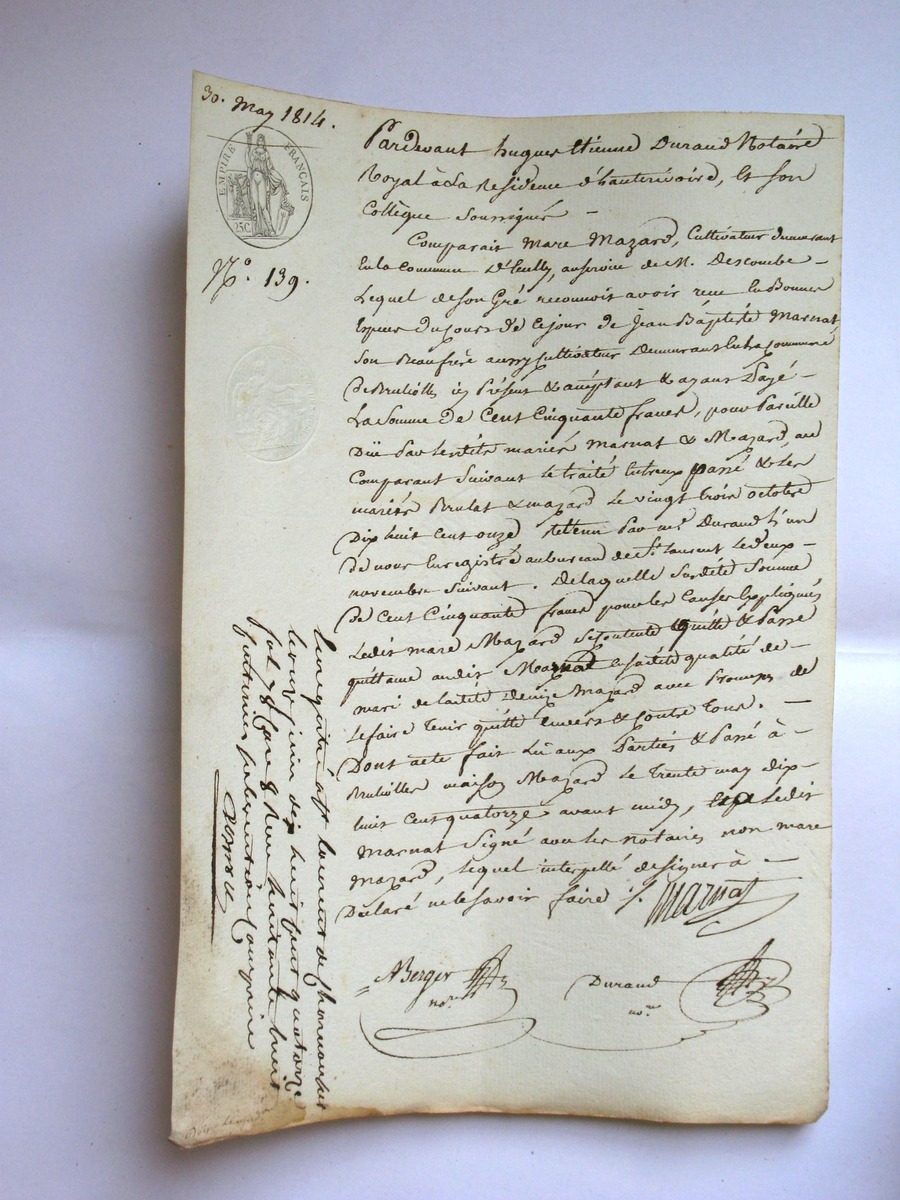 30. May 1814.
EMPIRE FRANÇAIS
25C
N.° 139.
Pardevant hugues Etienne Durand Notaire
Royal à La Residence d'hauterivoire, Et son
Collègue Soussignés —
Comparait Marc Mazard, Cultivateur demeurant
En la Commune D'Eculy, au service de M. Descombe —
Lequel de son Gré reconnoit avoir reçu En Bonnes
Espèces du jours de ce jour de Jean Baptiste Marnat
Son Beaufrère aussy Cultivateur Demeurant En la Commune
de Brulioles icy Présent & acceptant & ayant Payé —
La Somme De Cent Cinquante francs, pour Pareille
Düe Par Lesdits mariés Marnat & Mazard, au
Comparant Suivant Le traité Entreux passé & Les
mariés Brulat & mazard Le vingt trois octobre
Dix huit Cent onze retenu Par m.e Durand L'un
de nous Enregistré au bureau de S.t Laurent Le deux —
novembre Suivant. De laquelle Susdite Somme
de Cent Cinquante francs pour les Causes Expliquées
Ledit marc Mazard se contente quitte & Passe
quittance audit Marnat En sadite qualité de —
mari de ladite Mazard avec Promesse de
Le faire Tenir quitte Envers & Contre Tous. —
Dont acte fait Lû aux Parties & Passé à —
Brulioles maison Mazard Le Trente may dix-
huit Cent quatorze avant midy, Ledit
Marnat Signé avec les notaires non marc
Mazard, Lequel interpellé de signer à —
Déclaré ne le savoir faire /.
Marnat
ABerger
no.re
Durand
no.re
Enregistré à S.t Laurent de Chamousset
juin dix huit cent quatorze
fol. 78 Reçu huit